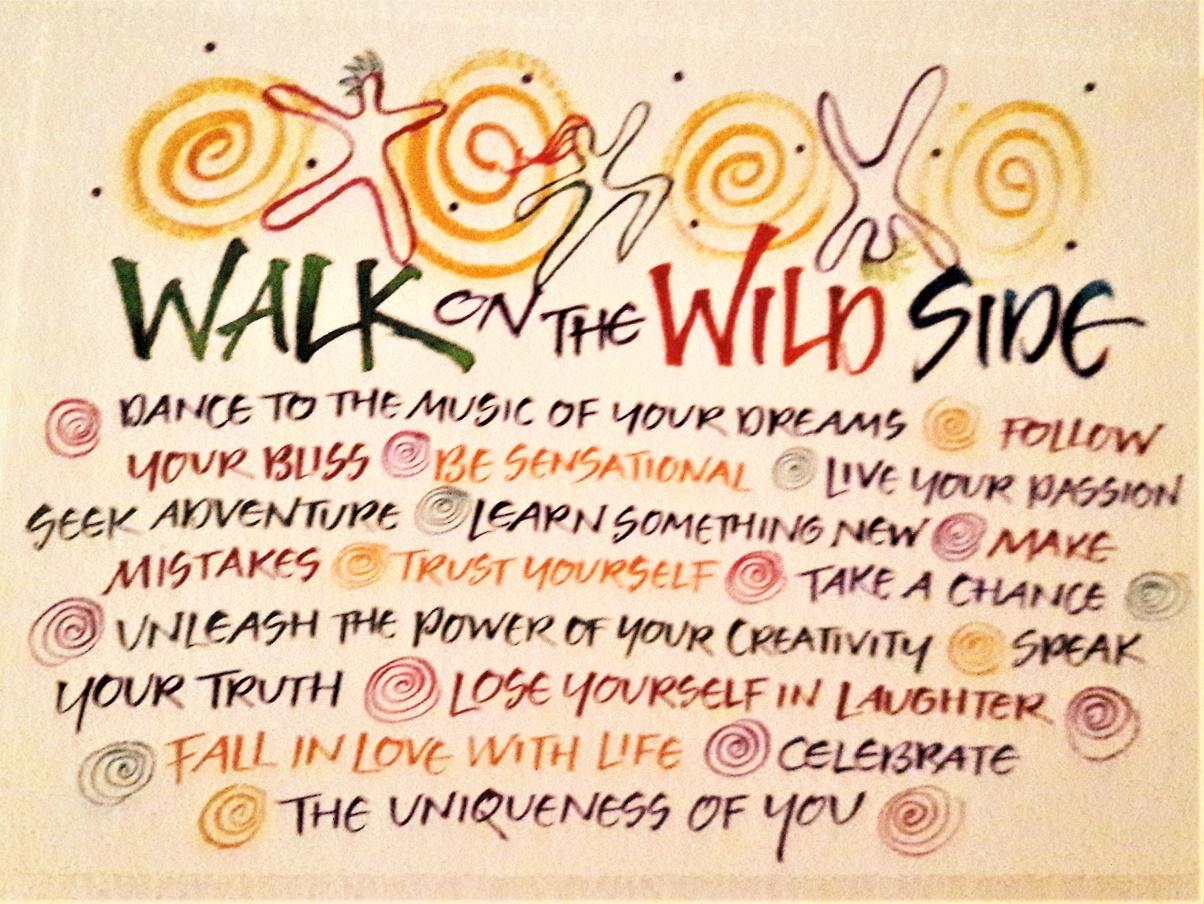 WALK ON THE WILD SIDE
DANCE TO THE MUSIC OF YOUR DREAMS FOLLOW
YOUR BLISS BE SENSATIONAL LIVE YOUR PASSION
SEEK ADVENTURE LEARN SOMETHING NEW MAKE
MISTAKES TRUST YOURSELF TAKE A CHANCE
UNLEASH THE POWER OF YOUR CREATIVITY SPEAK
YOUR TRUTH LOSE YOURSELF IN LAUGHTER
FALL IN LOVE WITH LIFE CELEBRATE
THE UNIQUENESS OF YOU